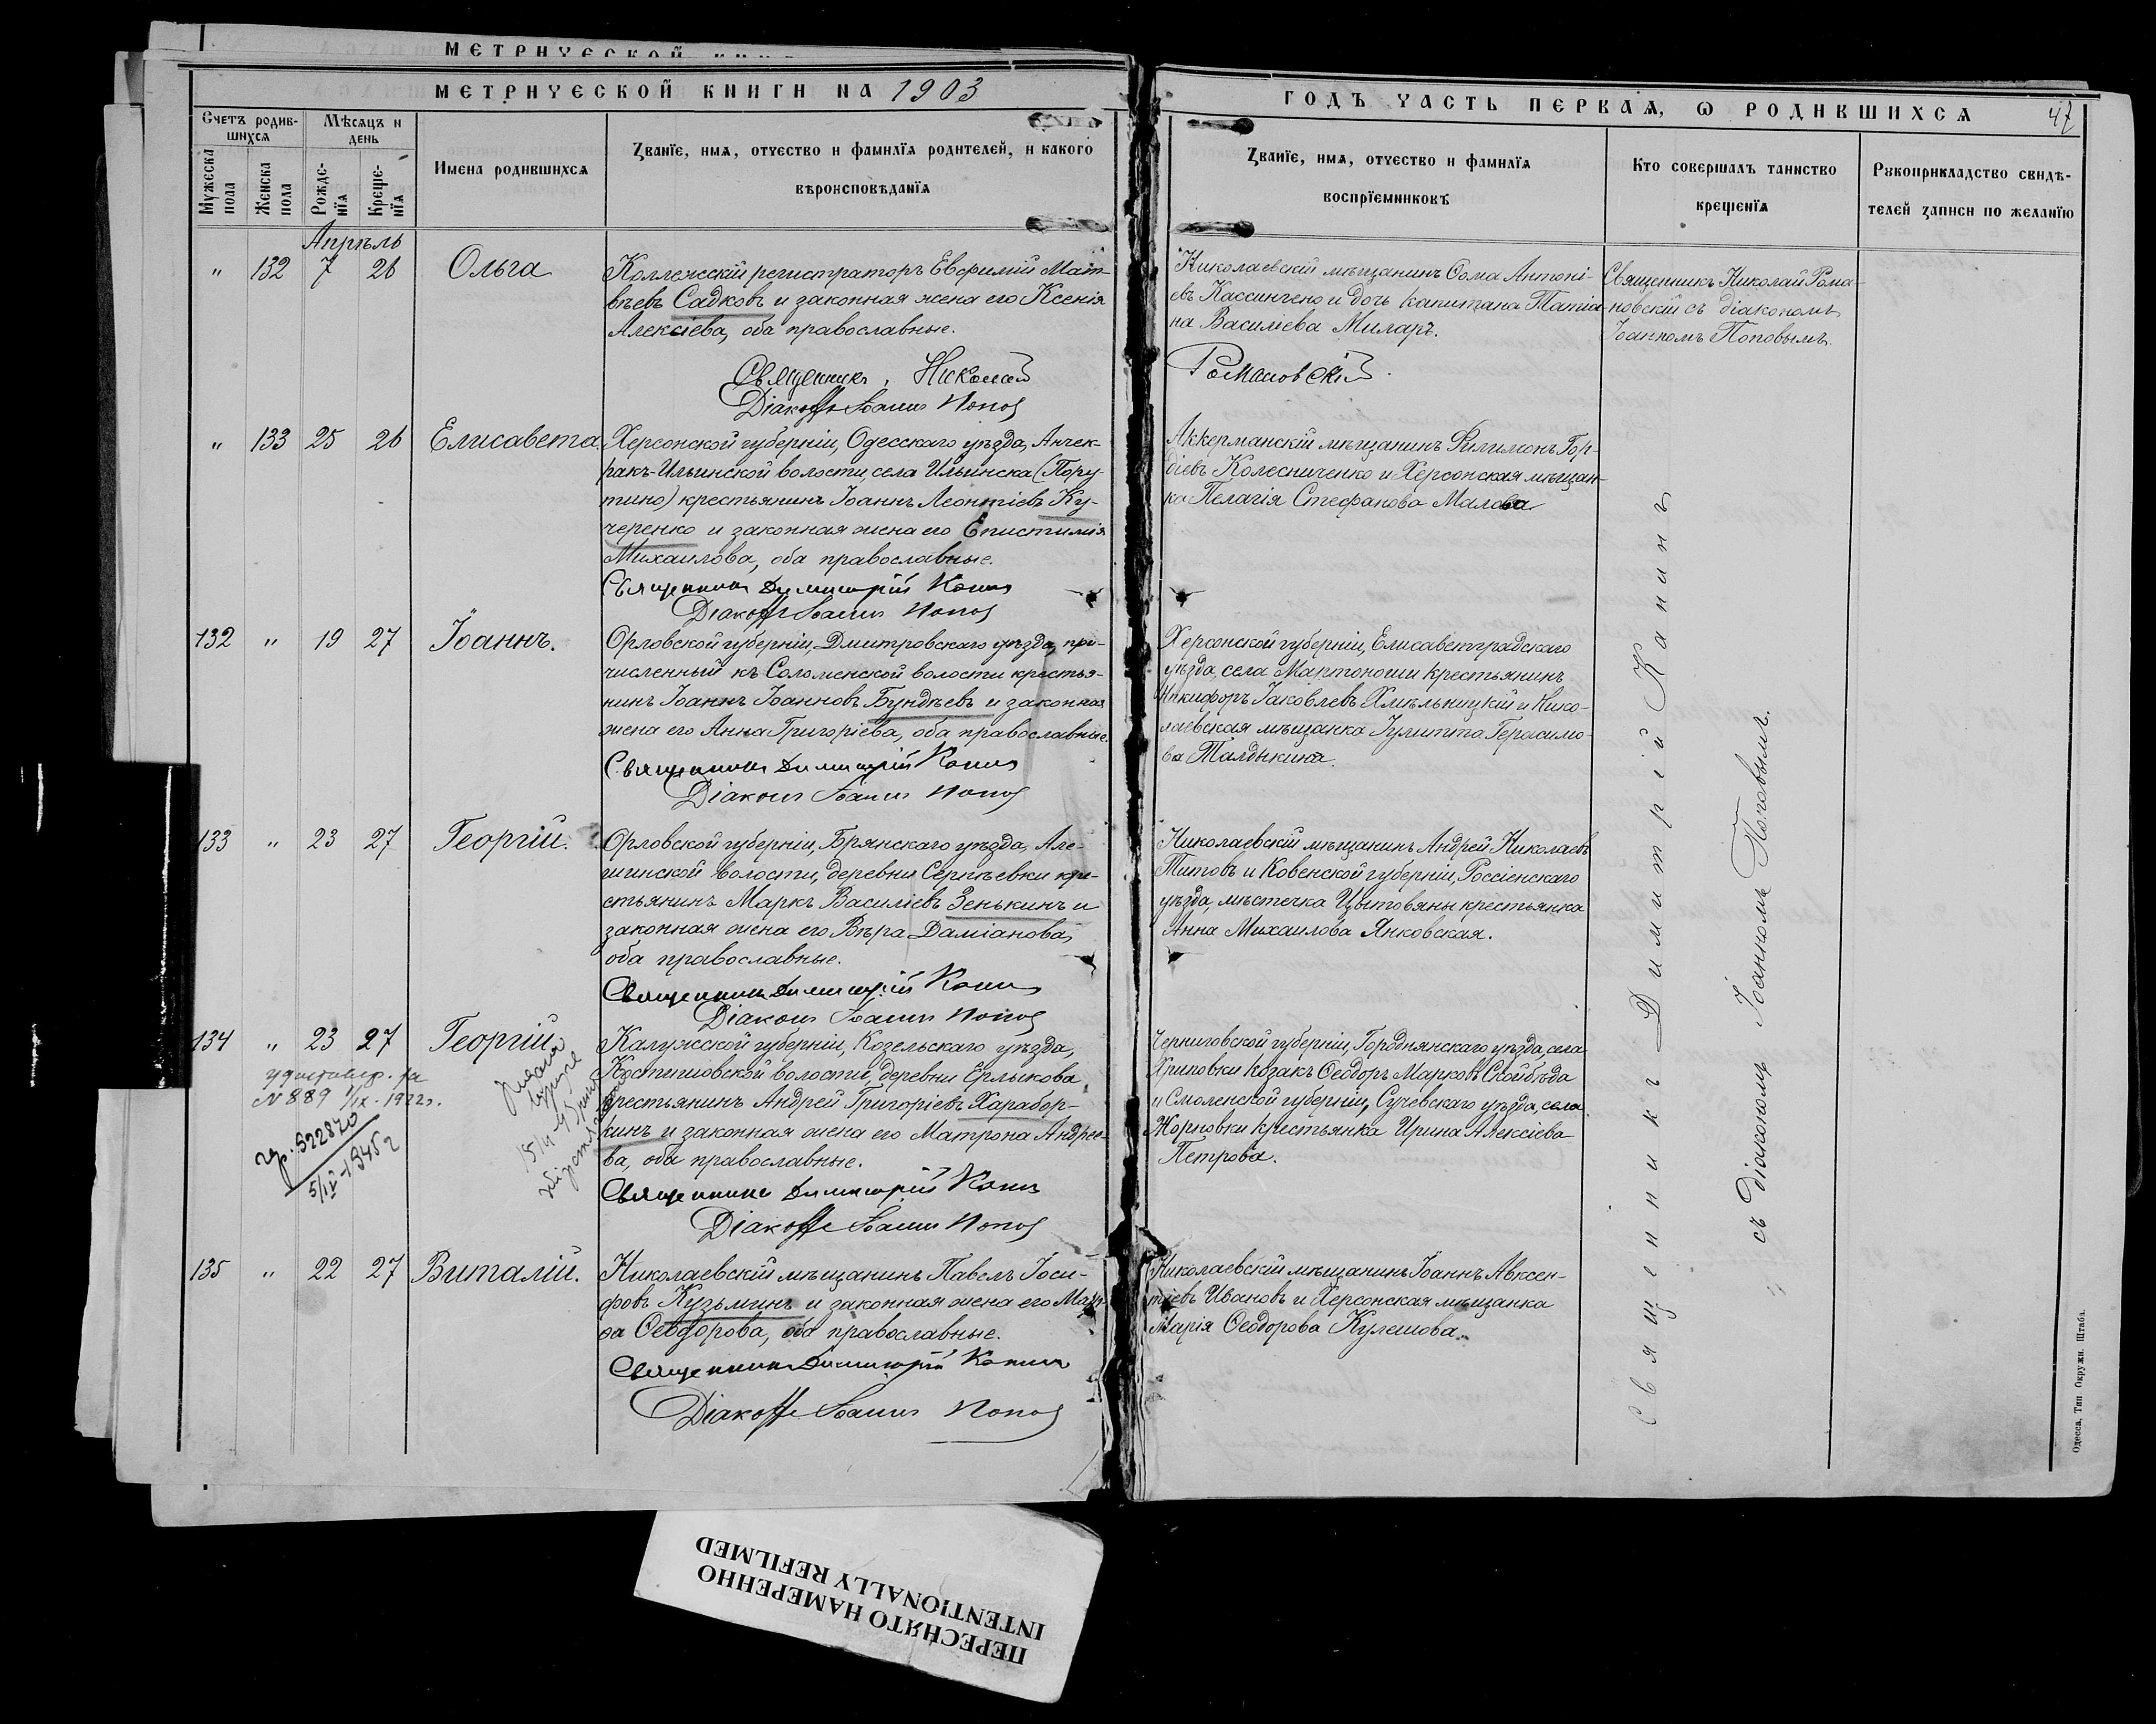 МЕТРИЧЕСКОЙ КНИГИ НА 1903
ГОДЪ ЧАСТЬ ПЕРВАЯ, Ѡ РОДИВШИХСЯ
47
Счетъ родив-
шихся
Мѣсяцъ и
день
Мужеска
пола
Женска
пола
Рожде-
нїя
Креще-
нїя
Имена родившихся
Званїе, имя, отчество и фамилїя родителей, и какого
вѣроисповѣданїя
Званїе, имя, отчество и фамилїя
воспрїемниковъ
Кто совершалъ таинство
крещенїя
Рукоприкладство свидѣ-
телей записи по желанїю
Апрѣль
" 132 7 26 Ольга
Коллежскій регистраторъ Евфимій Мат-
вѣевъ Садковъ и законная жена его Ксенія
Алексіева, оба православные.
Николаевскій мѣщанинъ Ѳома Антоні-
евъ Кассингено и дочь капитана Татіа-
на Василіева Миларъ.
Священникъ Николай Рома-
новскій съ діакономъ
Іоанномъ Поповымъ.
Священникъ Николай Романовскій.
Діаконъ Іоаннъ Поповъ
" 133 25 26 Елисавета.
Херсонской губерніи, Одесскаго уѣзда, Анчек-
ракъ-Ильинской волости, села Ильинска (Пору-
тино) крестьянинъ Іоаннъ Леонтіевъ Ку-
черенко и законная жена его Епистимія
Михаилова, оба православные.
Священникъ Димитрій Канинъ
Діаконъ Іоаннъ Поповъ
Аккерманскій мѣщанинъ Филимонъ Гор-
діевъ Колесниченко и Херсонская мѣщан-
ка Пелагія Стефанова Малова
132 " 19 27 Іоаннъ.
Орловской губерніи, Дмитровскаго уѣзда, при-
численный къ Соломенской волости крестья-
нинъ Іоаннъ Іоанновъ Бундѣевъ и законная
жена его Анна Григоріева, оба православные.
Священникъ Димитрій Канинъ
Діаконъ Іоаннъ Поповъ
Херсонской губерніи, Елисаветградскаго
уѣзда, села Мартоноши крестьянинъ
Никифоръ Іаковлевъ Хмѣльницкій и Нико-
лаевская мѣщанка Іулитта Герасимо-
ва Талдыкина.
133 " 23 27 Георгій.
Орловской губерніи, Брянскаго уѣзда, Але-
шинской волости, деревни Сергѣевки кре-
стьянинъ Маркъ Василіевъ Зенькинъ и
законная жена его Вѣра Даміанова,
оба православные.
Священникъ Димитрій Канинъ
Діаконъ Іоаннъ Поповъ
Николаевскій мѣщанинъ Андрей Николаевъ
Титовъ и Ковенской губерніи, Россіенскаго
уѣзда, мѣстечка Цытовяны крестьянка
Анна Михаилова Янковская.
134 " 23 27 Георгій
N 889 1/IX - 1922 г.
522870
5/IV-1945 г
Калужской губерніи, Козельскаго уѣзда,
Костешовской волости, деревни Ерлыкова
крестьянинъ Андрей Григоріевъ Харабор-
кинъ и законная жена его Матрона Андрее-
ва, оба православные.
Священникъ Димитрій Канинъ
Діаконъ Іоаннъ Поповъ
Черниговской губерніи, Городнянскаго уѣзда, села
Хриповки козакъ Ѳеодоръ Марковъ Скойбѣда
и Смоленской губерніи, Сучевскаго уѣзда, села
Жорновки крестьянка Ирина Алексіева
Петрова.
135 " 22 27 Виталій.
Николаевскій мѣщанинъ Павелъ Іоси-
фовъ Кузьминъ и законная жена его Мар-
ѳа Ѳеодорова, оба православные.
Священникъ Димитрій Канинъ
Діаконъ Іоаннъ Поповъ
Николаевскій мѣщанинъ Іоаннъ Авксен-
тіевъ Ивановъ и Херсонская мѣщанка
Марія Ѳеодорова Кулешова.
Священникъ Димитрій Канинъ
съ діакономъ Іоанномъ Поповымъ.
Одесса, Тип Окружн. Штаба.
ПЕРЕСНЯТО НАМЕРЕННО
INTENTIONALLY REFILMED